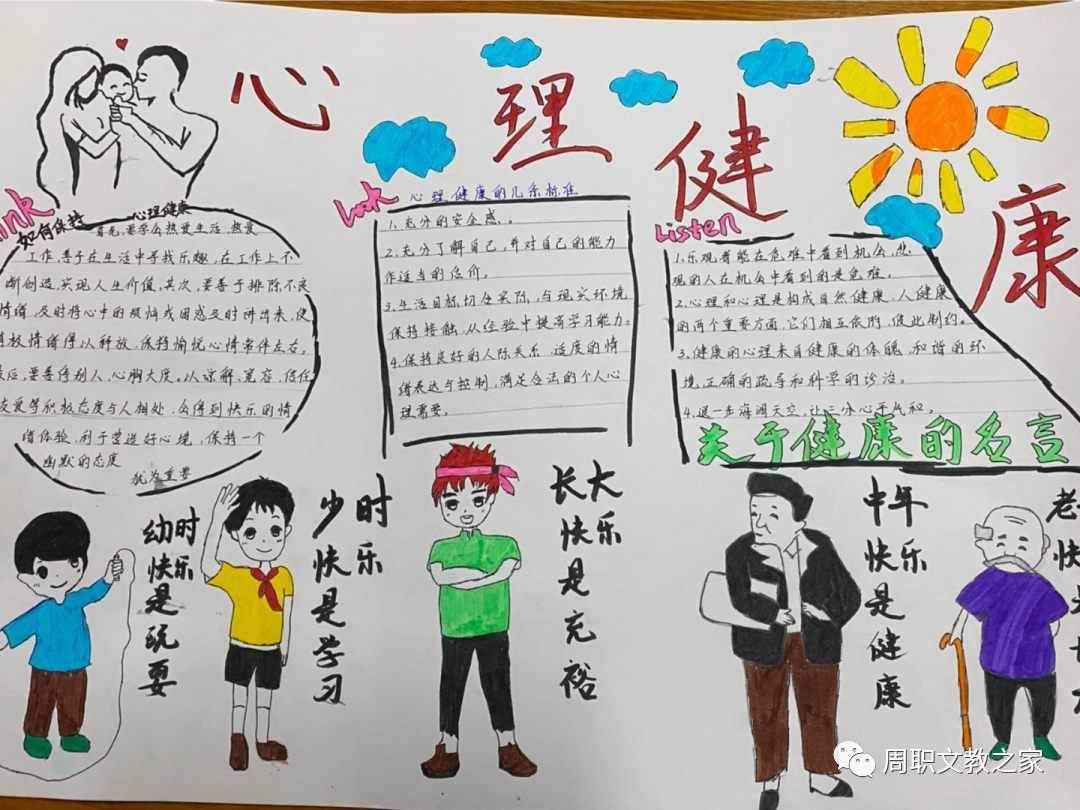 心理健康
ink
如何保持
心理健康
首先,要学会热爱生活,热爱
工作,善于在生活中寻找乐趣,在工作上不
断创造,实现人生价值。其次,要善于排除不良
情绪,及时将心中的烦恼或困惑及时讲出来,使
极情绪得以释放,保持愉悦心情常伴左右。
最后,要善待别人,心胸大度。以谅解、宽容、信任
友爱等积极态度与人相处,会得到快乐的情
绪体验,利于营造好心境,保持一个
幽默的态度
尤为重要
look
心理健康的几条标准
1.充分的安全感。
2.充分了解自己,并对自己的能力
作适当的估价。
3.生活目标切合实际,与现实环境
保持接触,从经验中提高学习能力。
4.保持良好的人际关系,适度的情
绪表达与控制,满足合法的个人心
理需要。
Listen
1.乐观者能在危难中看到机会,悲
观的人在机会中看到的是危难。
2.心理和心理是构成自然健康,人健康
的两个重要方面,它们相互依附,彼此制约。
3.健康的心理来自健康的体魄,和谐的环
境,正确的疏导和科学的诊治。
4.退一步海阔天空,让三分心平气和。
关于健康的名言
幼时
快乐
是
玩
耍
少时
快乐
是
学
习
长大
快乐
是
充
裕
中年
快乐
是
健
康
老
快
周职文教之家